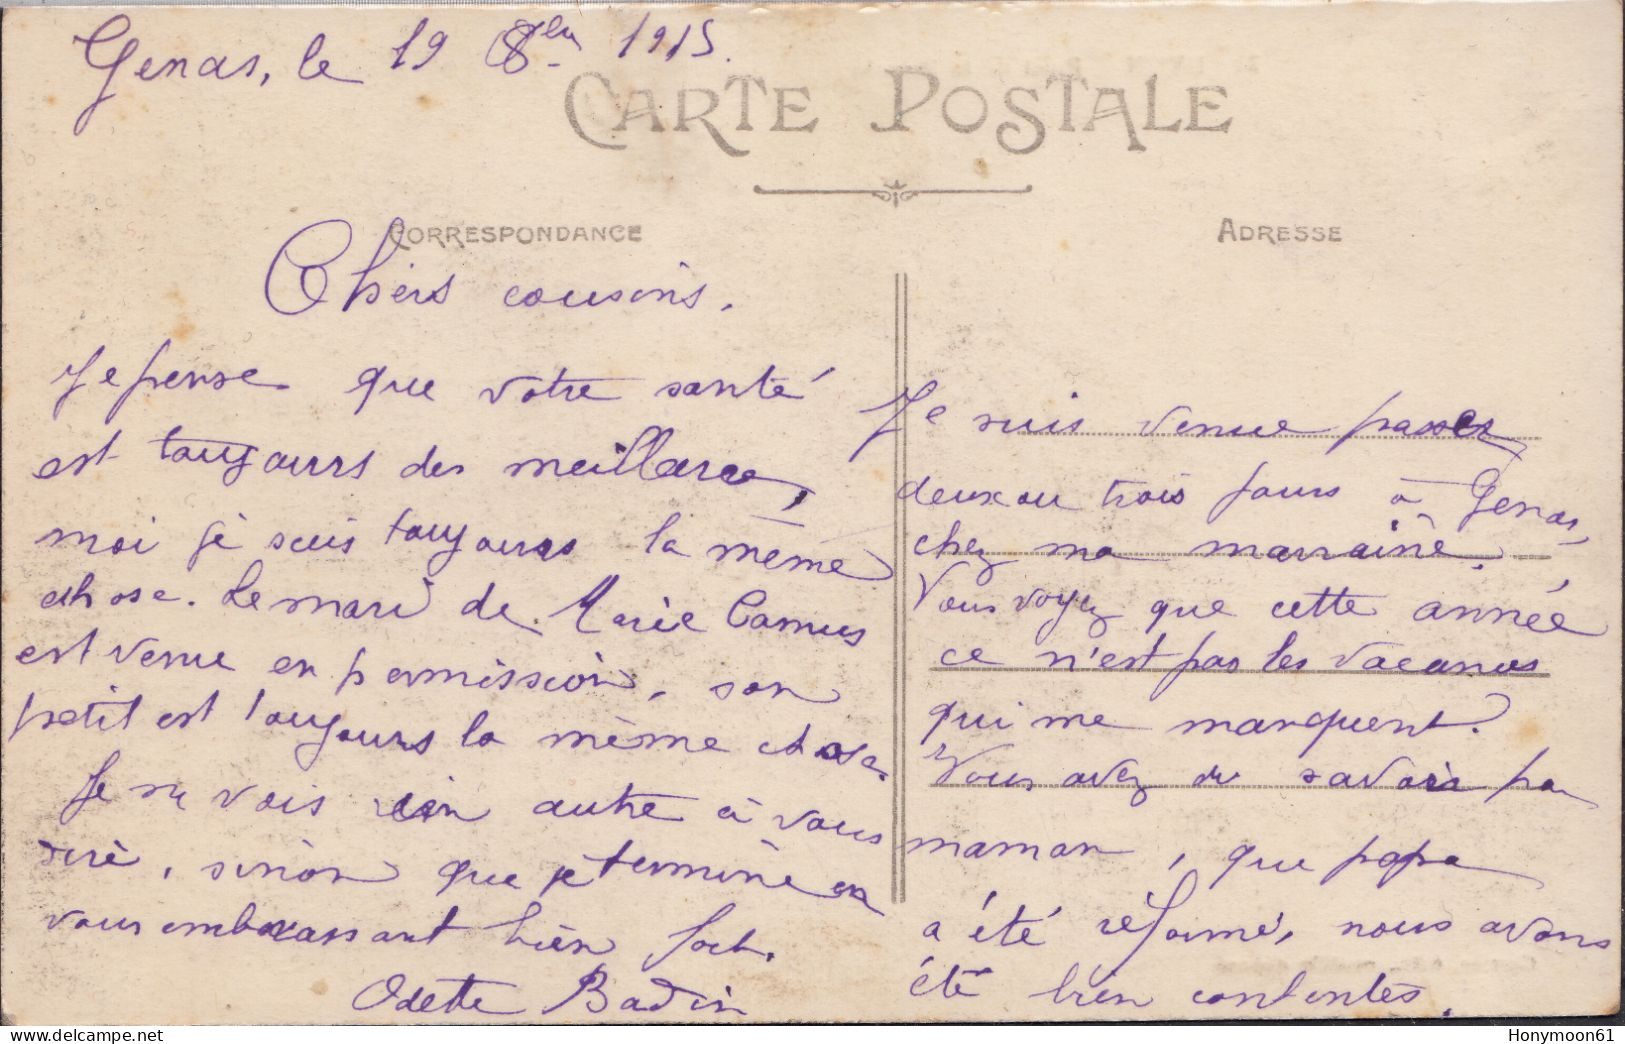 Genas, le 19 8bre 1915.
CARTE POSTALE
CORRESPONDANCE
ADRESSE
Chers cousins.
Je pense que votre santé
est toujours des meillares,
moi je suis toujours la même
chose. Le mari de Marie Camus
est venue en permission, son
petit est toujours la même chose.
Je ne vois rien autre à vous
dire, sinon que je termine en
vous embrassant bien fort.
Odette Badin
Je suis venue passer
deux ou trois jours à Genas,
chez ma marraine.
Vous voyez que cette année
ce n'est pas les vacances
qui me manquent.
Vous avez du savoir par
maman, que papa
a été réformé, nous avons
été bien contentes.
Honymoon61